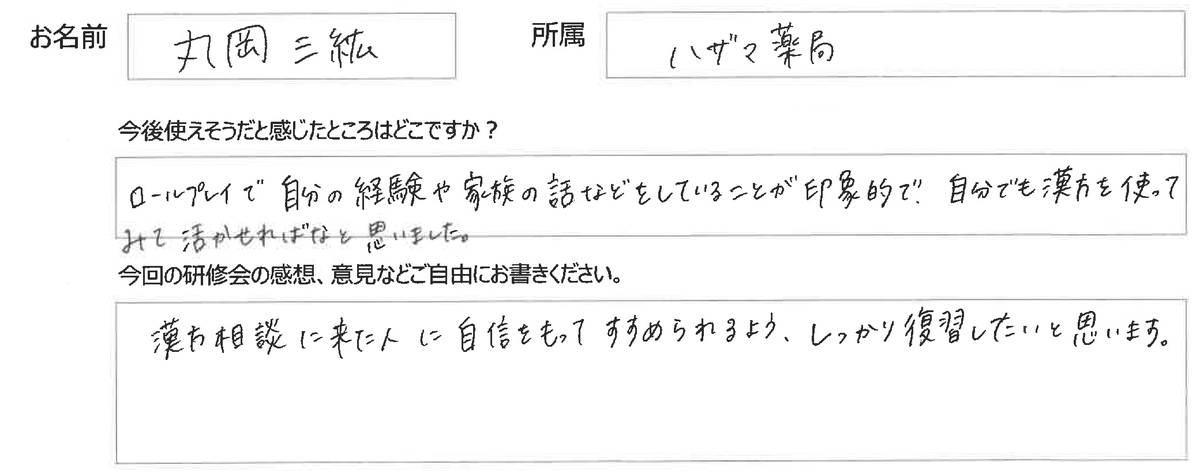 お名前 丸岡 三紘 所属 ハザマ薬局
今後使えそうだと感じたところはどこですか？
ロールプレイで自分の経験や家族の話などをしていることが印象的で、自分でも漢方を使って
みて活かせればなと思いました。
今回の研修会の感想、意見などご自由にお書きください。
漢方相談に来た人に自信をもってすすめられるよう、しっかり復習したいと思います。